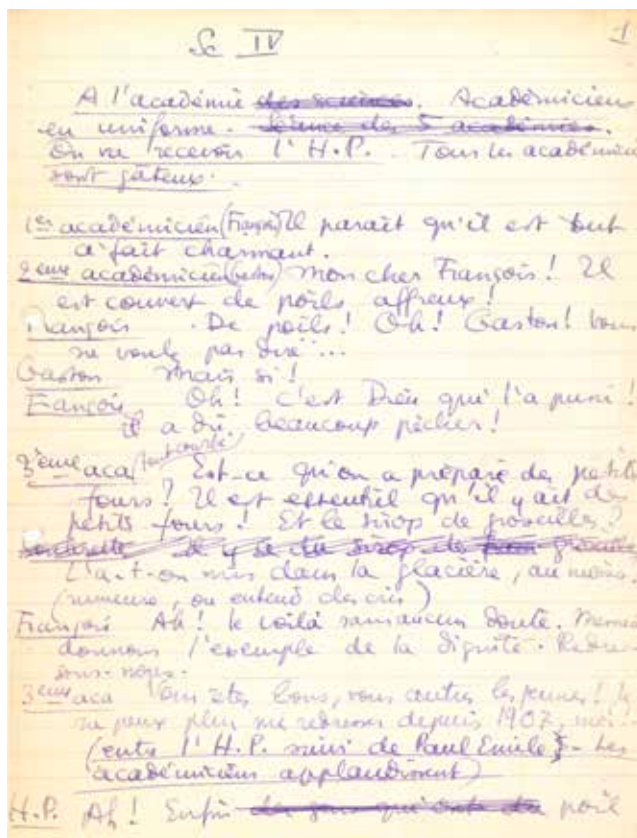 Sc IV
1
A l'académie des sciences. Académiciens
en uniforme. Séance des 5 académies.
On va recevoir l'H.P. Tous les académici
sont gâteux.
1er académicien (François) Il paraît qu'il est tout
à fait charmant.
2eme académicien (Gaston) Mon cher François! Il
est couvert de poils affreux!
François . De poils! Oh! Gaston! Vous
ne voulez pas dire...
Gaston Mais si!
François Oh! C'est Dieu qui l'a puni!
il a dû beaucoup pécher!
tout courbé
3eme aca Est-ce qu'on a préparé des petits
fours? Il est essentiel qu'il y ait des
petits fours! Et le sirop de groseilles?
il y a du sirop de
L'a-t-on mis dans la glacière, au moins.
(rumeurs, on entend des cris)
François Ah! le voilà sans aucun doute. Messie
donnons l'exemple de la dignité. Redres
sons-nous.
3eme aca Vous êtes bons, vous autres les jeunes! Je
ne peux plus me redresser depuis 1907, moi!
(entre l'H.P. suivi de Paul Emile) - Les
académiciens applaudissent)
H.P. Ah! Enfin des gens qui ont du poil